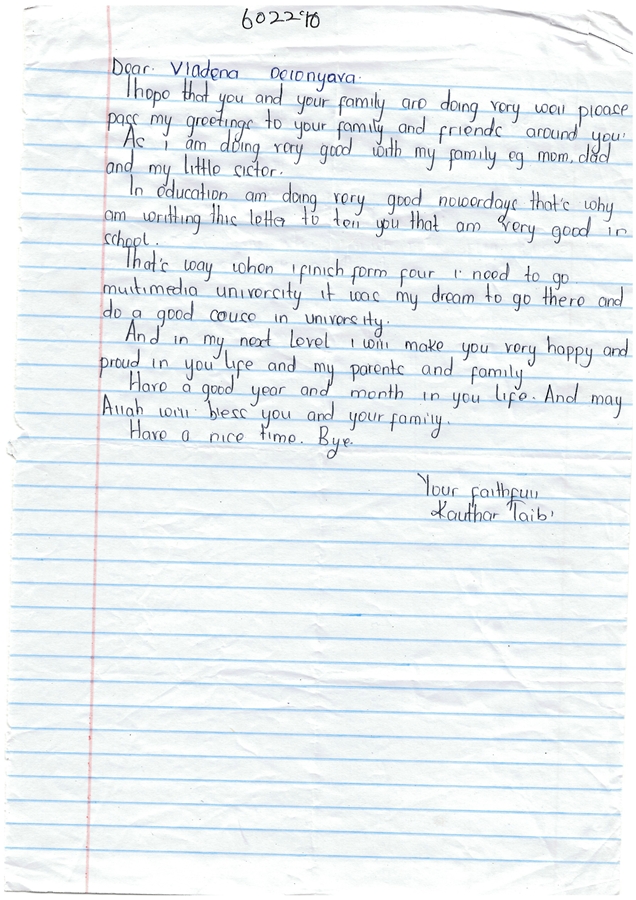 Dear Vladena
I hope that you and your family are doing very well please
pass my greetings to your family and friends around you.
As i am doing very good with my family eg mom, dad
and my little sister.
In education am doing very good nowerdays that's why
am writting this letter to tell you that am very good in
school.
That's way when i finish form four i need to go
multimedia university it was my dream to go there and
do a good couse in university.
And in my next level i will make you very happy and
proud in you life and my parents and family
Have a good year and month in you life. And may
Allah will bless you and your family.
Have a nice time. Bye.
Your faithfull
Kauthar Taib